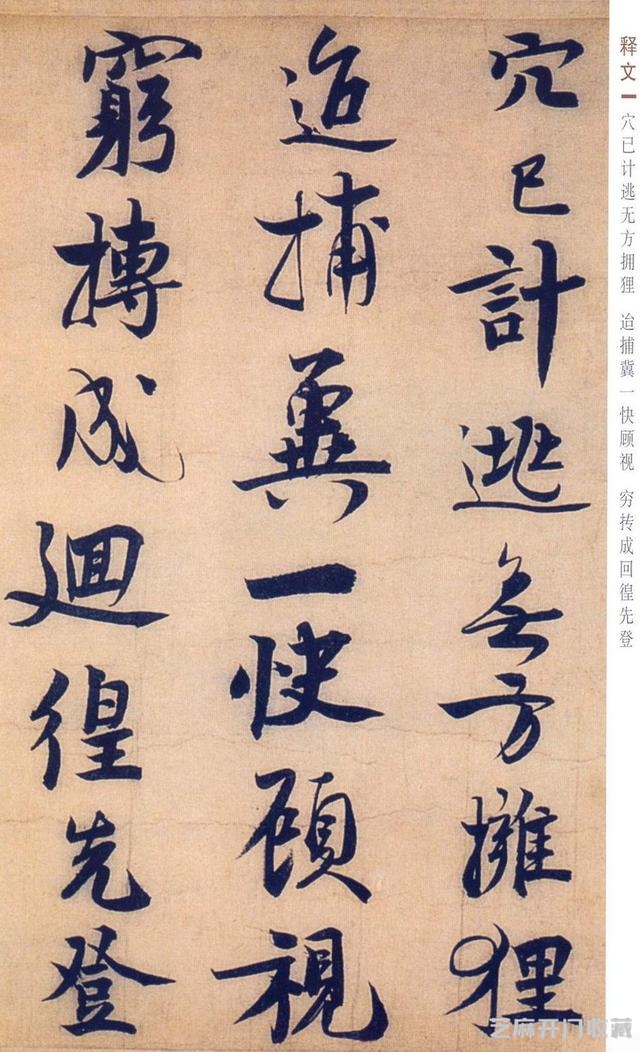 释文 穴已计逃无方拥狸 迨捕冀一快顾视 穷抟成回徨先登
穴已計逃無方擁狸
迨捕冀一快顧視
窮摶成迴徨先登
芝麻开门收藏